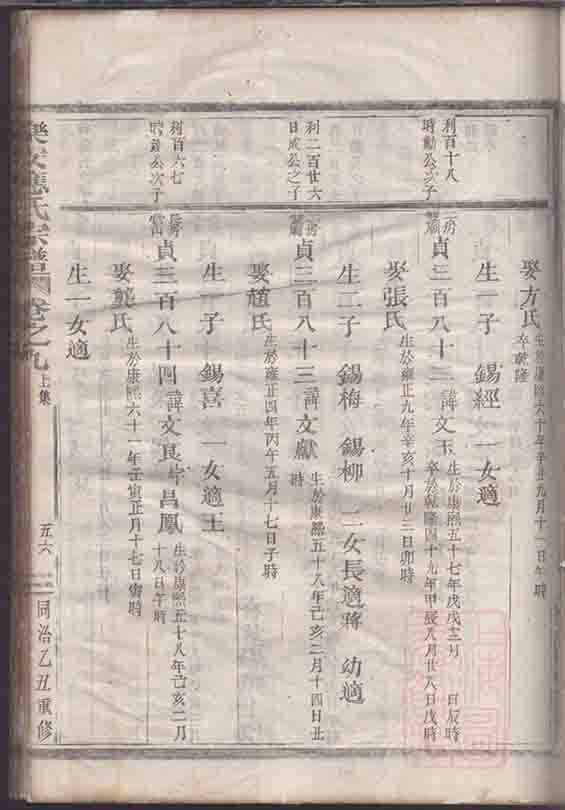 娶方氏 生於康熙六十年辛丑九月十一日午時
卒乾隆
生一子 錫經 一女適
利百十八
時勳公次子
貞三百八十二 諱文玉 生於康熙五十七年戊戌十二月 日辰時
卒於乾隆四十九年甲辰八月廿八日戊時
娶張氏 生於雍正九年辛亥十月廿三日卯時
生二子 錫梅 錫柳 二女長適蔣 幼適
利二百廿六
日成公之子
貞三百八十三 諱文獻 生於康熙五十八年己亥二月十四日丑
時
娶趙氏 生於雍正四年丙午五月十七日子時
生一子 錫喜 一女適王
利百六七
公次子
貞三百八十四 諱文良字昌鳳 生於康熙五十八年己亥二月
十八日午時
娶龔氏 生於康熙六十一年壬寅正月十七日寅時
生一女適
應氏宗譜 卷之九 上集 五六 同治乙丑重修